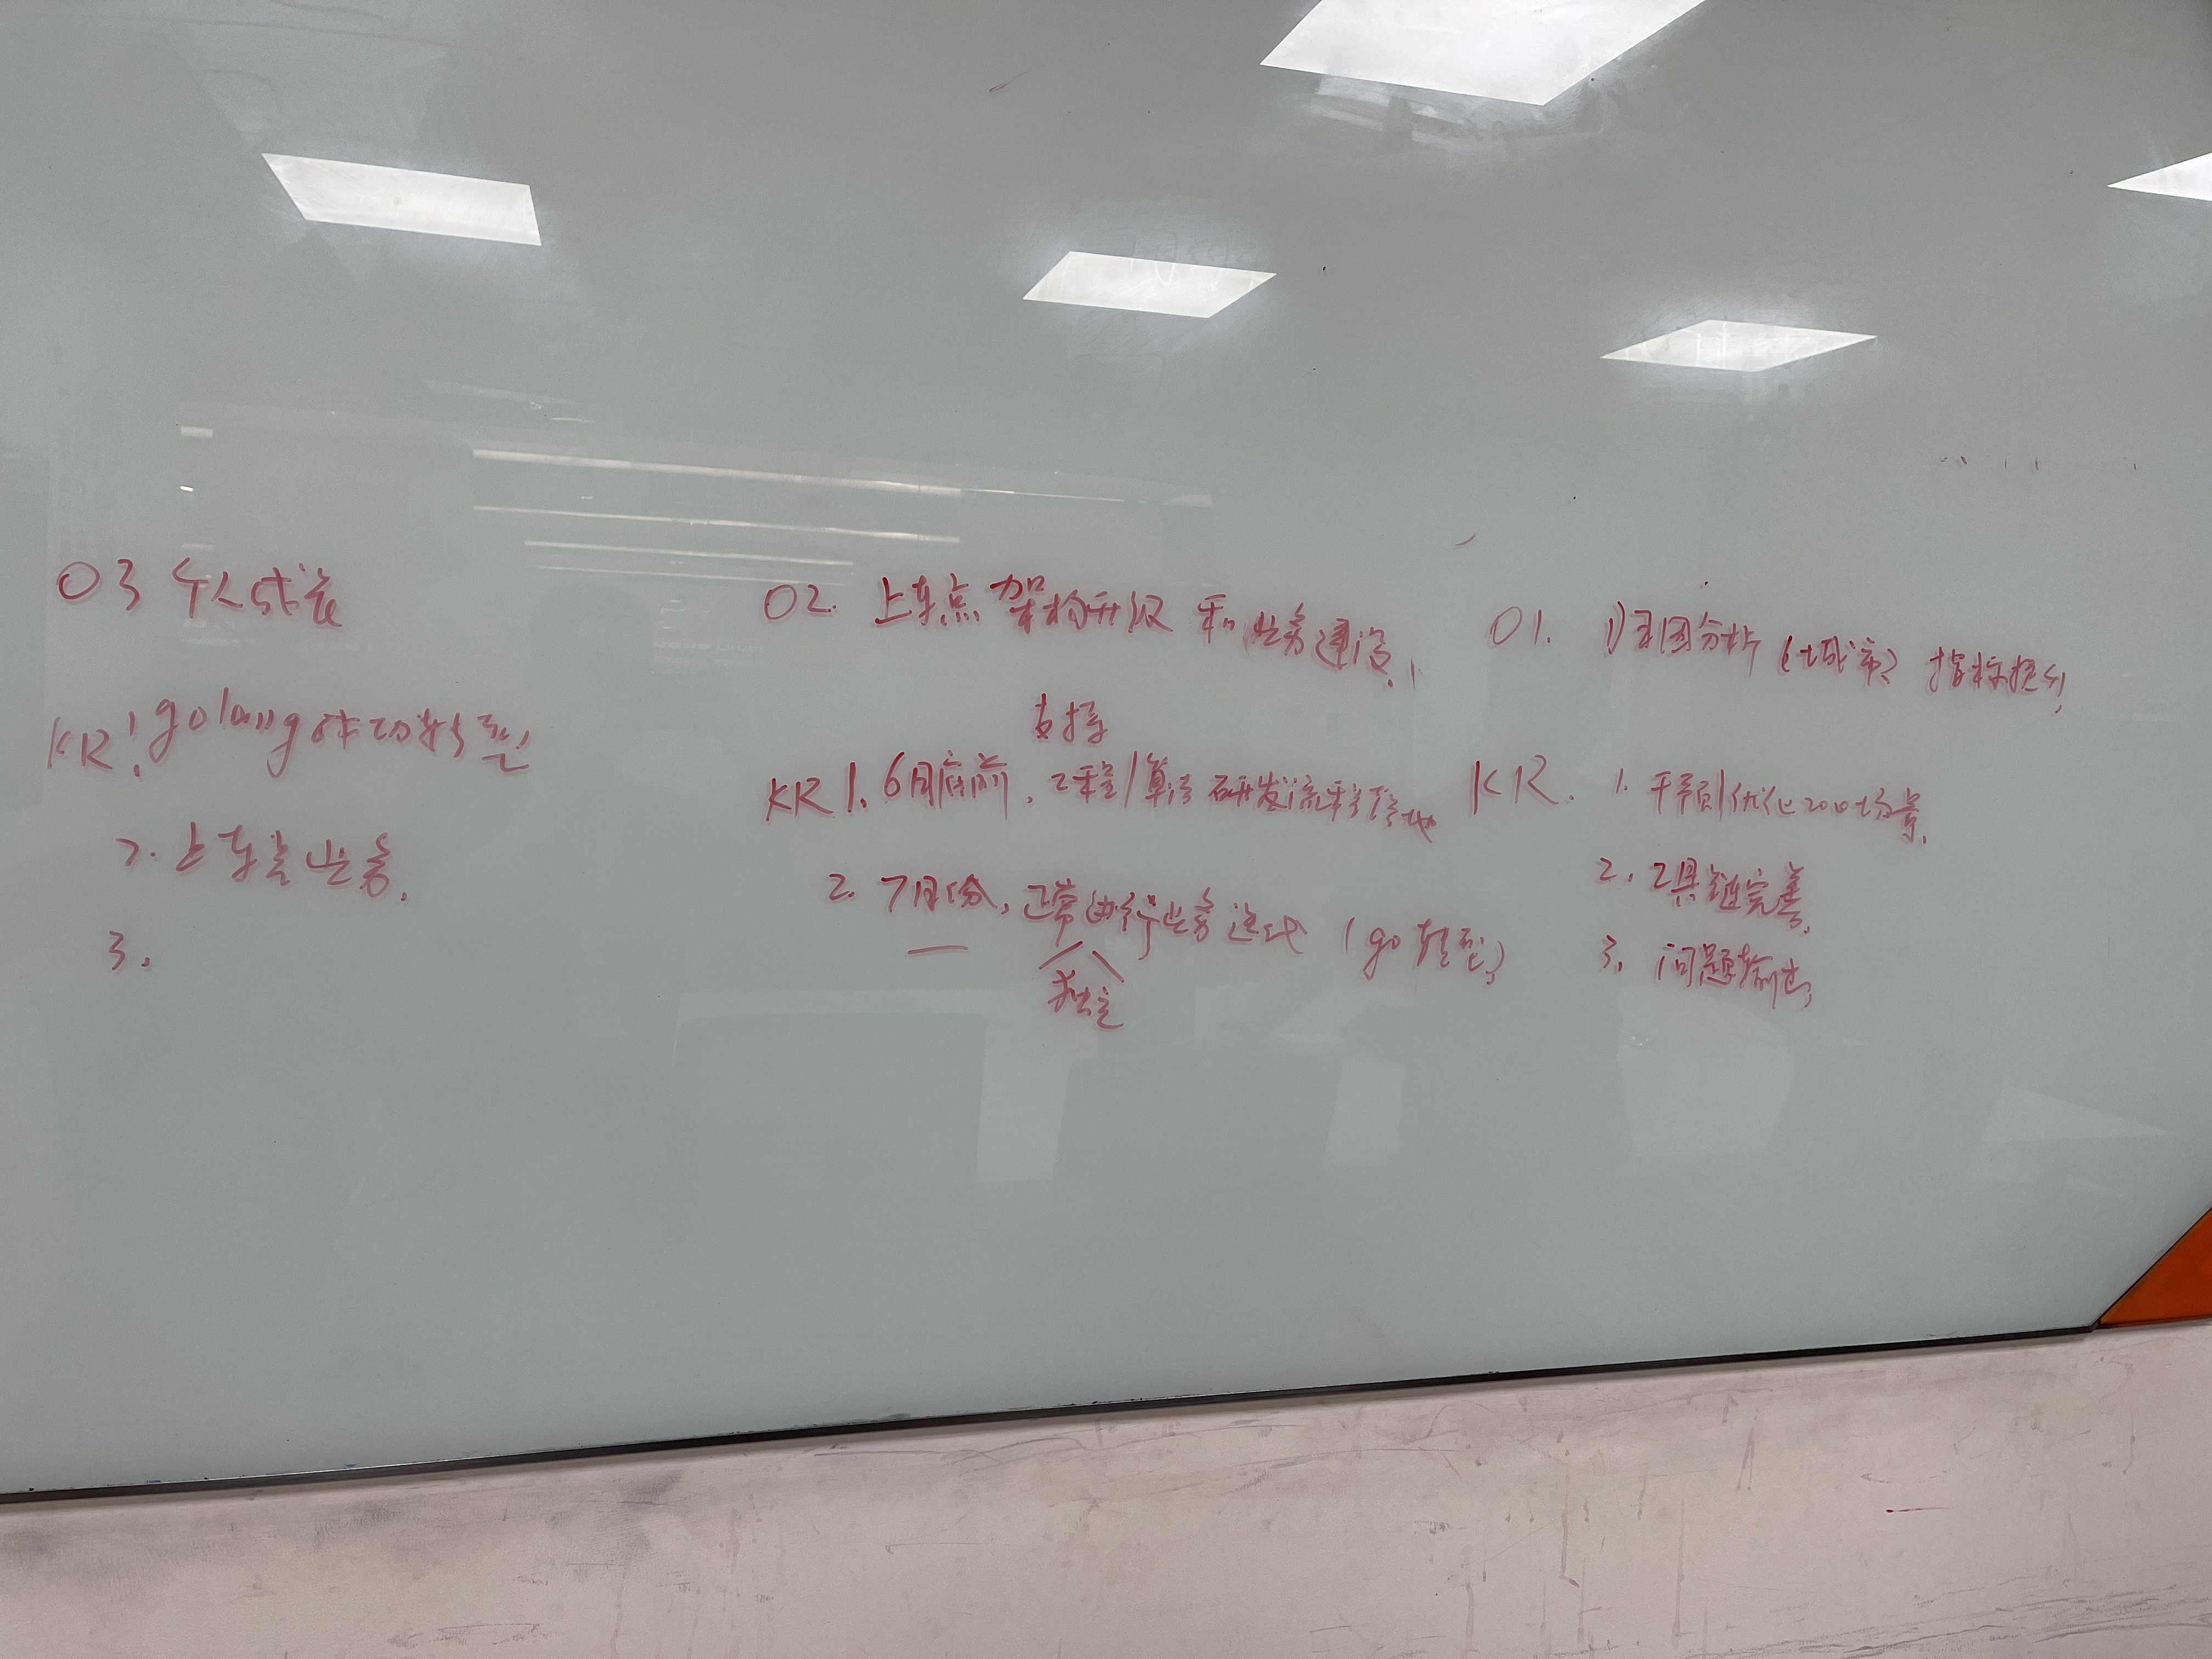 O3 个人成长
KR1 golang成功转型
2. 上车点业务.
3.
O2. 上车点架构升级和业务建设.
支持
KR1. 6月底前, 工程/算法研发流程落地
2. 7月份, 正常进行业务迭代 (go转型)
独立
O1. 归因分析 (大城市) 指标提升,
KR. 1. 干预优化200个场景.
2. 工具链完善.
3. 问题输出,